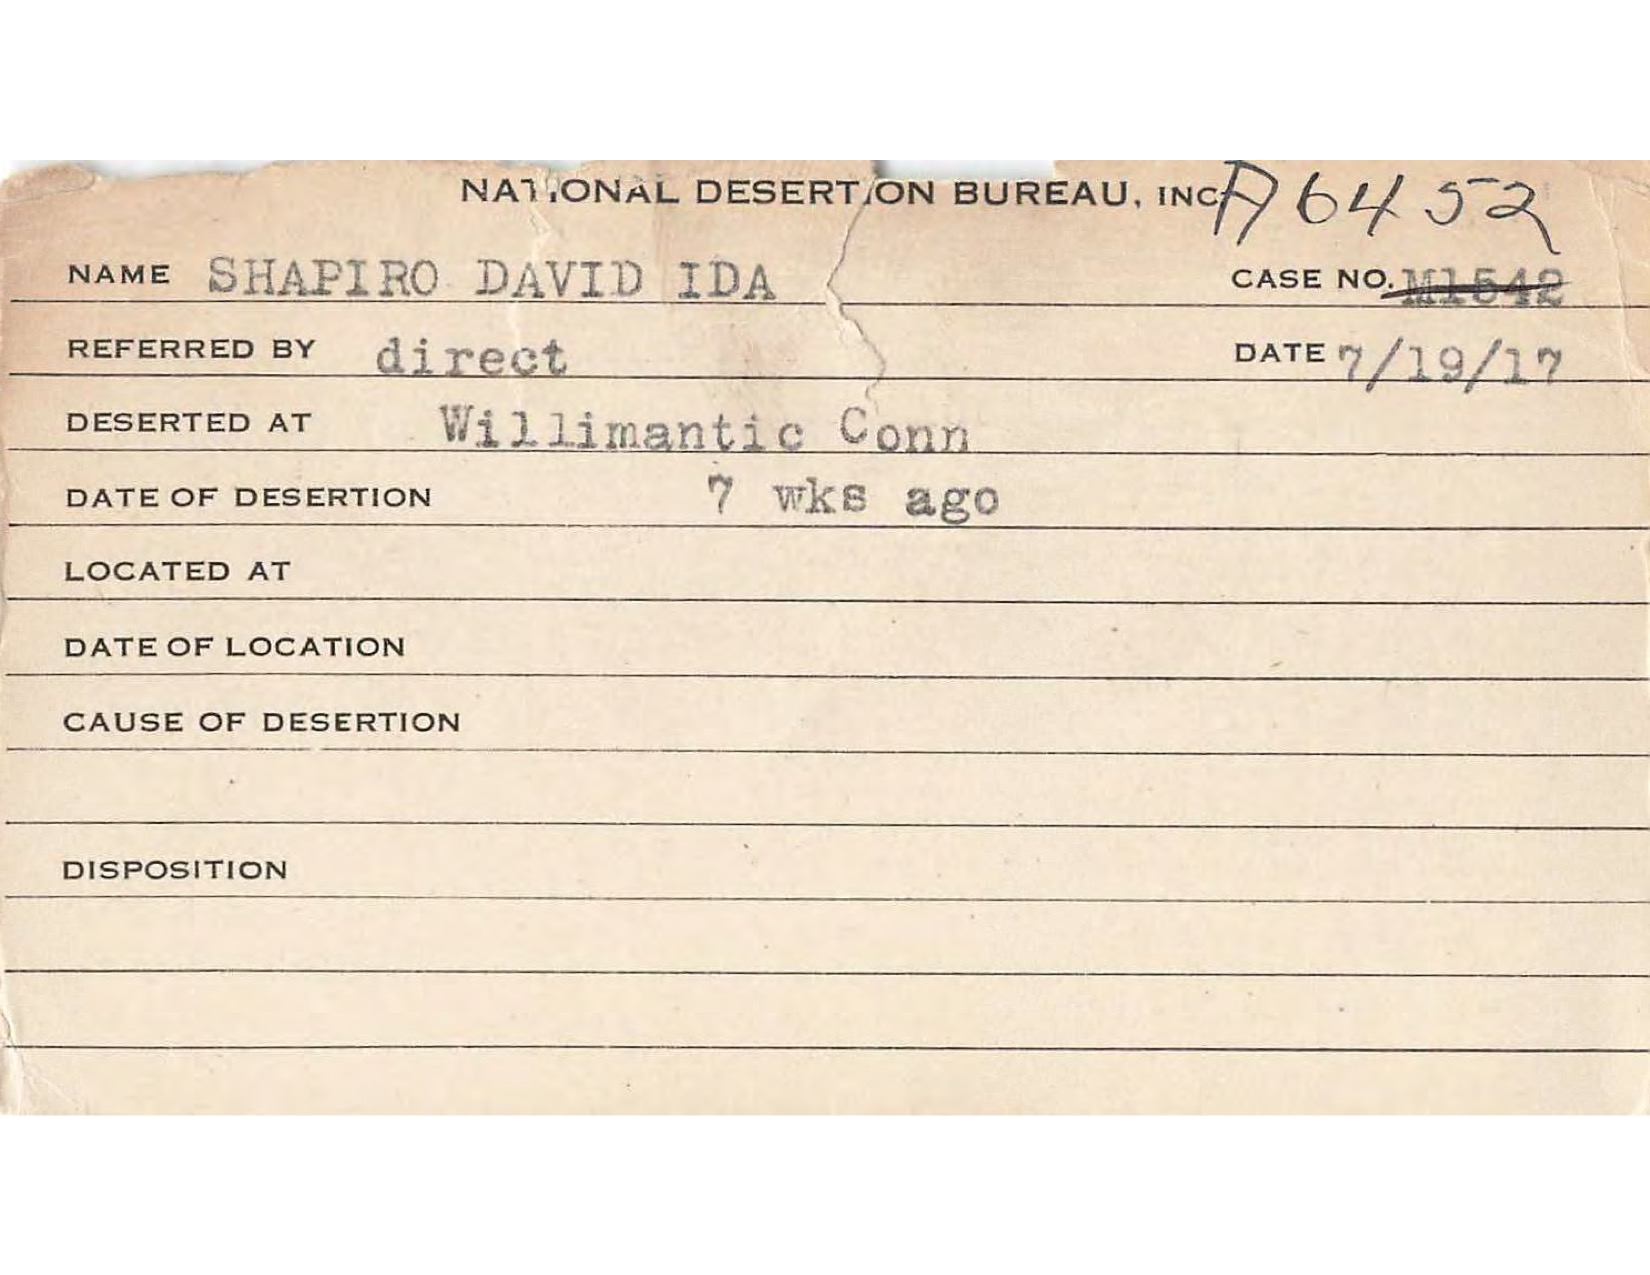 NATIONAL DESERTION BUREAU, INC. A6452
NAME SHAPIRO DAVID IDA CASE NO. M1542
REFERRED BY direct DATE 7/19/17
DESERTED AT Willimantic Conn
DATE OF DESERTION 7 wks ago
LOCATED AT
DATE OF LOCATION
CAUSE OF DESERTION
DISPOSITION